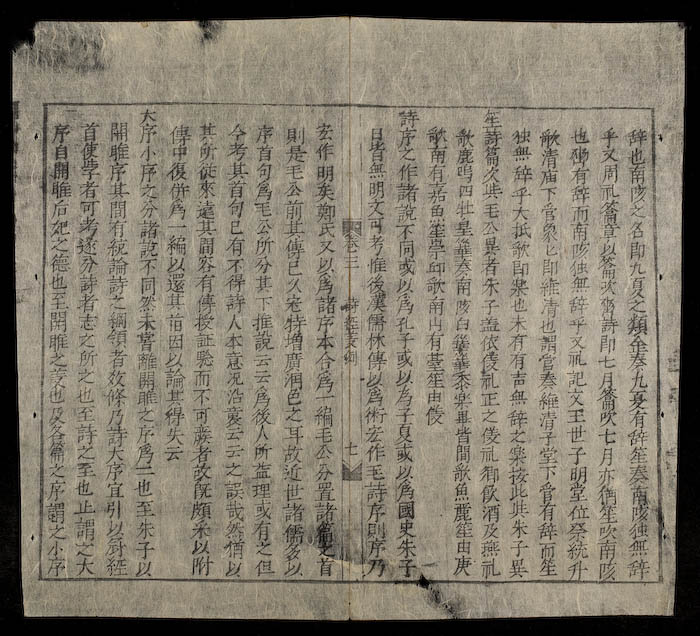 辞也南陔之名即九夏之類金奏九夏有辞笙奏南陔独無辞
乎又周礼籥章以籥吹豳詩即七月籥吹七月亦猶笙吹南陔
也豳有辞而南陔独無辞乎又礼記文王世子明堂位祭統升
歌清庙下管象象即維清也謂管奏維清子堂下管有辞而笙
独無辞乎大抵歌即楽也未有有声無辞之楽按此与朱子異
笙詩篇次与毛公異者朱子盖依儀礼正之儀礼鄉飲酒及燕礼
歌鹿鳴四牡皇華奏南陔白華華黍楽畢皆間歌魚麗笙由庚
歌南有嘉魚笙崇邱歌南山有䑓笙由儀
詩序之作諸說不同或以為孔子或以為子夏或以為國史朱子
曰皆無明文可考惟後漢儒林傳以為術宏作毛詩序則序乃
卷三
七
宏作明矣鄭氏又以為諸序本合為一編毛公分置諸篇之首
則是毛公前其傳已久宏特增廣潤色之耳故近世諸儒多以
序首句為毛公所分其下推說云云為後人所益理或有之但
今考其首句已有不得詩人本意况沿袭云云之誤哉然猶以
其所從來遠其間容有傳授証驗而不可廢者故既頗采以附
傳中復併為一編以還其首因以論其得失云
大序小序之分諸說不同然未甞離関雎之序為二也至朱子以
関雎序其間有統論詩之綱領者数條乃詩大序宜引以冠經
首使學者可考遂分詩者志之所之也至詩之至也止謂之大
序自関雎后妃之德也至関雎之義也及各篇之序謂之小序